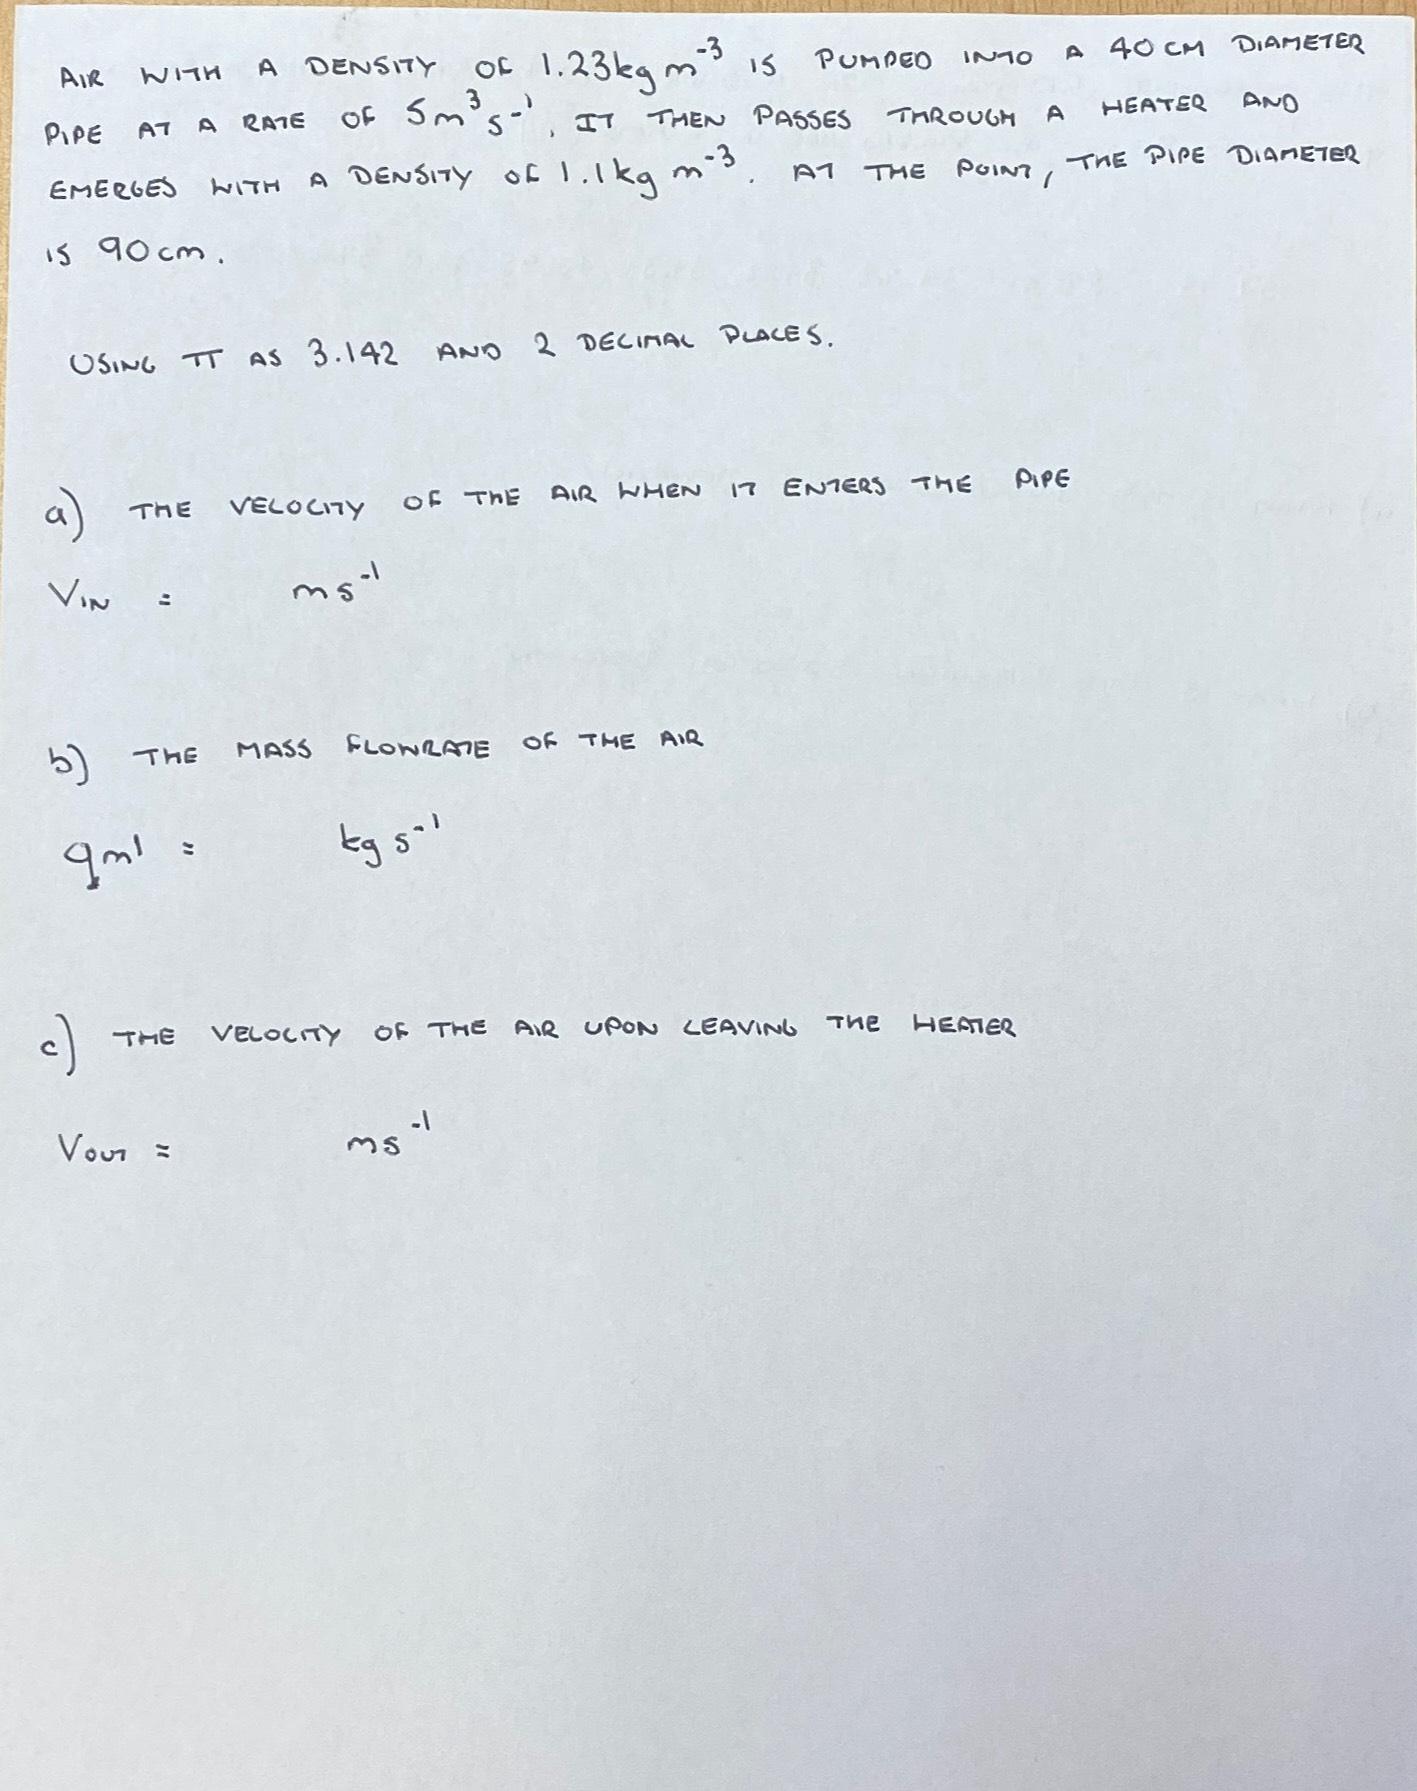 AIR WITH A DENSITY OF 1.23kg m⁻³ IS PUMPED INTO A 40 CM DIAMETER
PIPE AT A RATE OF 5m³ s⁻¹. IT THEN PASSES THROUGH A HEATER AND
EMERGES WITH A DENSITY OF 1.1kg m⁻³. AT THE POINT, THE PIPE DIAMETER
IS 90cm.
USING π AS 3.142 AND 2 DECIMAL PLACES.
a) THE VELOCITY OF THE AIR WHEN IT ENTERS THE PIPE
VIN = ms⁻¹
b) THE MASS FLOWRATE OF THE AIR
qm1 = kg s⁻¹
c) THE VELOCITY OF THE AIR UPON LEAVING THE HEATER
VOUT = ms⁻¹